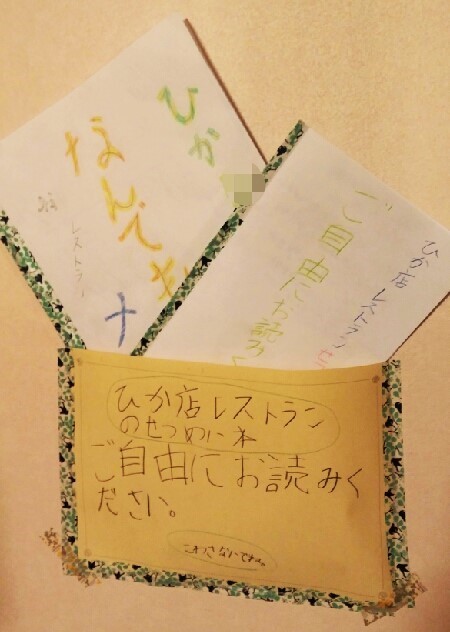 ひか
なんで
レストラン
ひか店レストランせ
ご自由にお読みく
ひか店レストラン
のせつめい本
ご自由にお読みく
ださい。
こわさないでね。